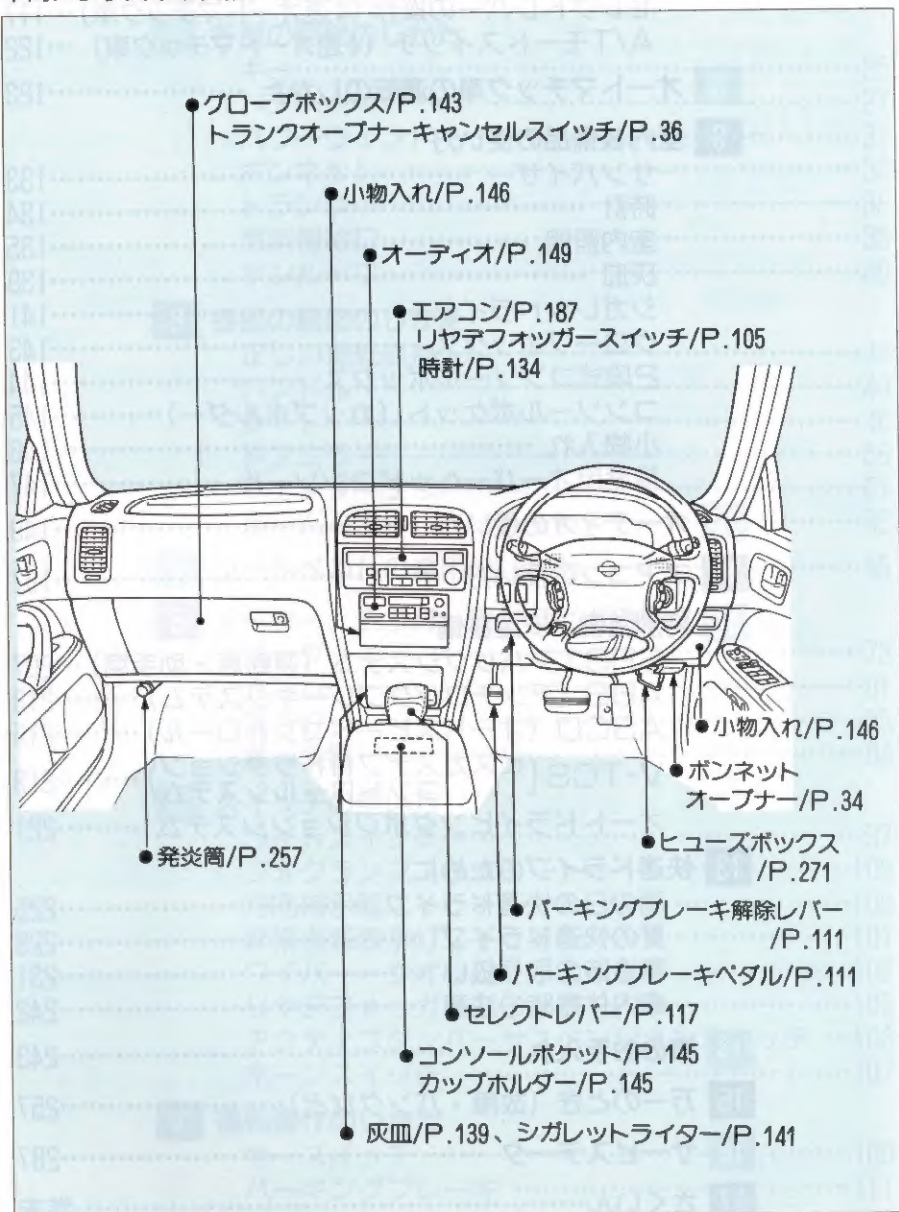 グローブボックス/P.143
トランクオープナーキャンセルスイッチ/P.36
小物入れ/P.146
オーディオ/P.149
エアコン/P.187
リヤデフォッガースイッチ/P.105
時計/P.134
小物入れ/P.146
ボンネット
オープナー/P.34
ヒューズボックス
/P.271
発炎筒/P.257
パーキングブレーキ解除レバー
/P.111
パーキングブレーキペダル/P.111
セレクトレバー/P.117
コンソールポケット/P.145
カップホルダー/P.145
灰皿/P.139、シガレットライター/P.141